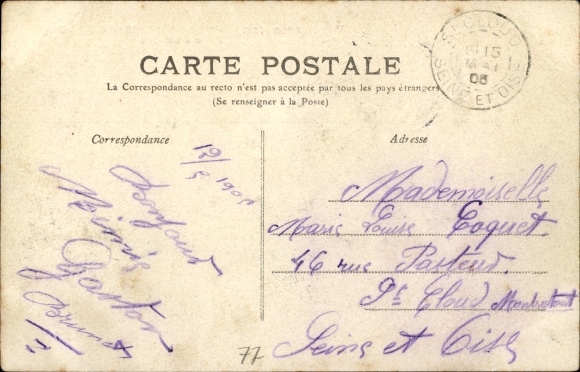 CARTE POSTALE
La Correspondance au recto n'est pas acceptée par tous les pays étrangers
(Se renseigner à la Poste)
ST CLOUD
15
MAI
05
SEINE ET OISE
Correspondance
Adresse
Bonjour
Mimie
Gaston
Brunet
Mademoiselle
Marie Louise Coquet
46 rue Pasteur
St Cloud Montretout
Seine et Oise
77